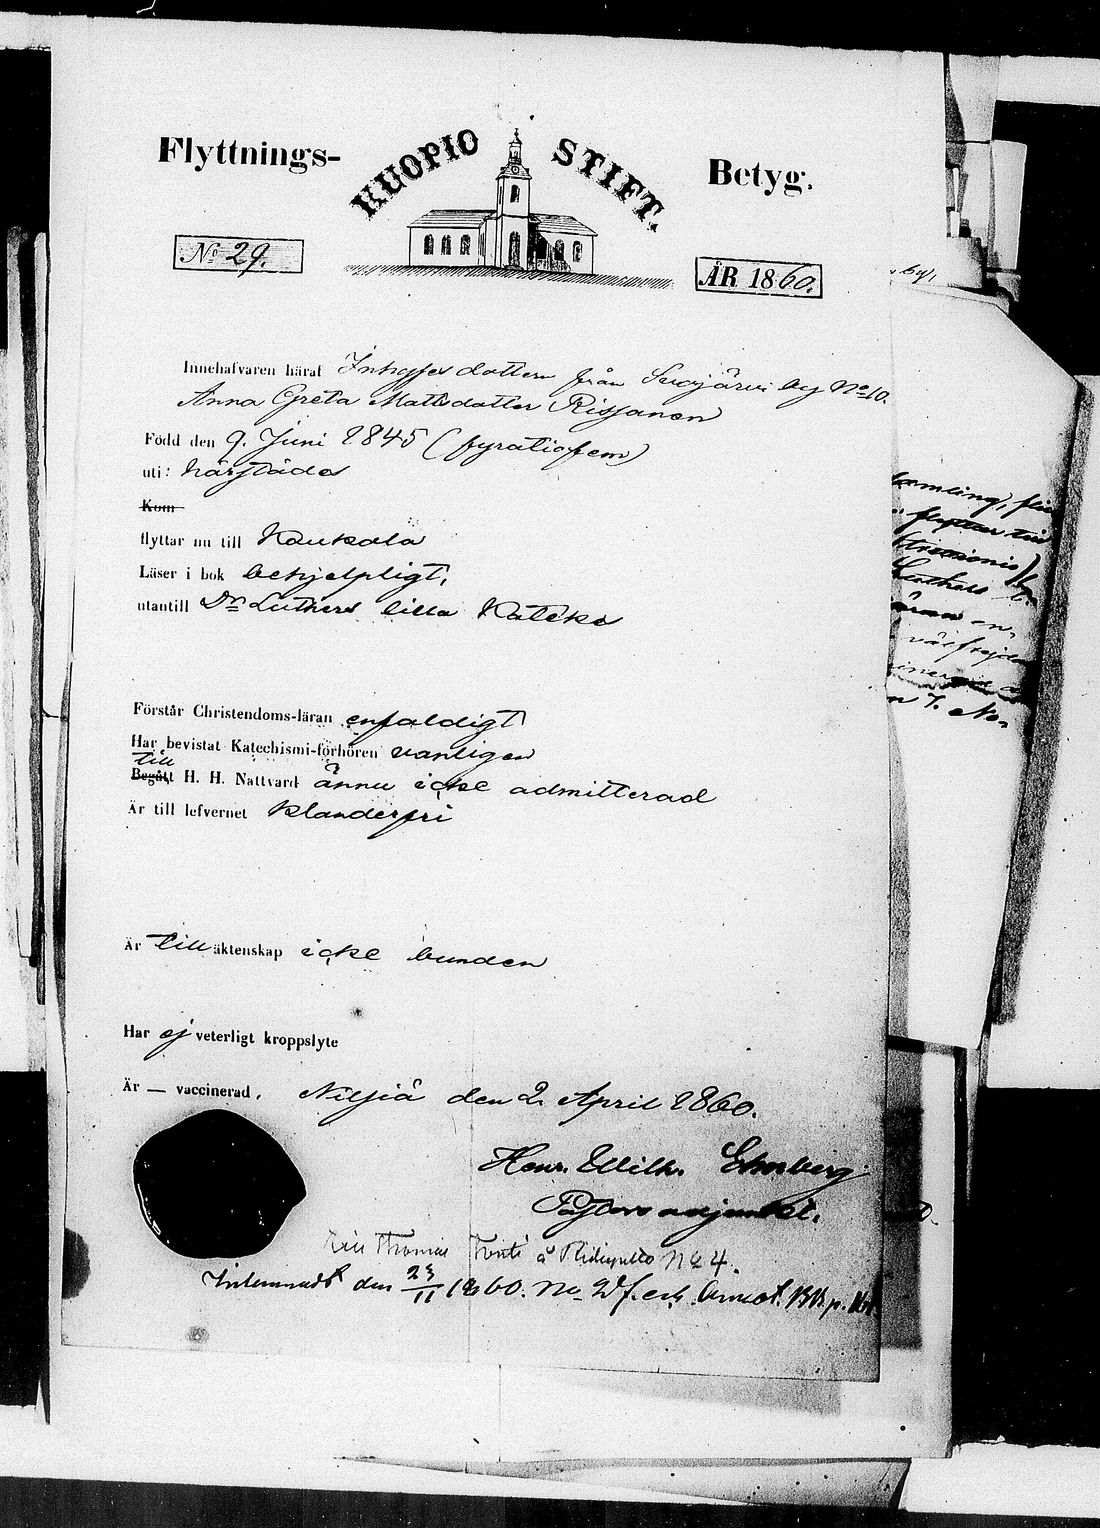 Flyttnings- KUOPIO STIFT. Betyg.
No 29.
ÅR 1860.
Innehafvaren häraf Inhyses dottern från Suojärvi by No 10.
Anna Greta Mattsdotter Rissanen
Född den 9. Juni 1845 (fyratiofem)
uti: härstädes
Kom
flyttar nu till Kaukola
Läser i bok behjelpligt,
utantill Dr Luthers lilla Kateks
Förstår Christendoms-läran enfaldigt
Har bevistat Katechismi-förhören vanligen
till
Begått H. H. Nattvard ännu icke admitterad
Är till lefvernet klanderfri
Är till äktenskap icke bunden
Har ej veterligt kroppslyte
Är — vaccinerad. Nilsiä den 2 April 1860.
Henr. Wilh. Ehrnberg
Pastors adjunkt.
Thomas å No 4.
den 23/11 1860. No p.